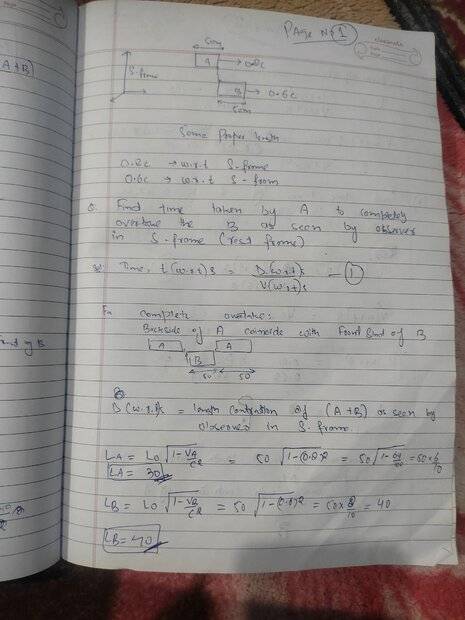 PAGE No 1
classmate
A+B)
50m
A → 0.8c
S-frame
B → 0.6c
50m
Same Proper length
0.8c → w.r.t S-frame
0.6c → w.r.t S-from
Q. Find time taken by A to completely
overtake the B as seen by observer
in S-frame (rest frame)
Time, t(w.r.t)s = D(w.r.t)s / V(w.r.t)s — 1
For complete overtake:
Backside of A coincide with Front End of B
A A
B
50 50
D(w.r.t)s = length contration of (A+B) as seen by
observer in S-frame.
LA = Lo √1-VA/c2 = 50 √1-(0.8)2 = 50 √1-64/100 = 50×6/10
LA = 30
LB = Lo √1-VB/c2 = 50 √1-(0.6)2 = 50×8/10 = 40
LB = 40